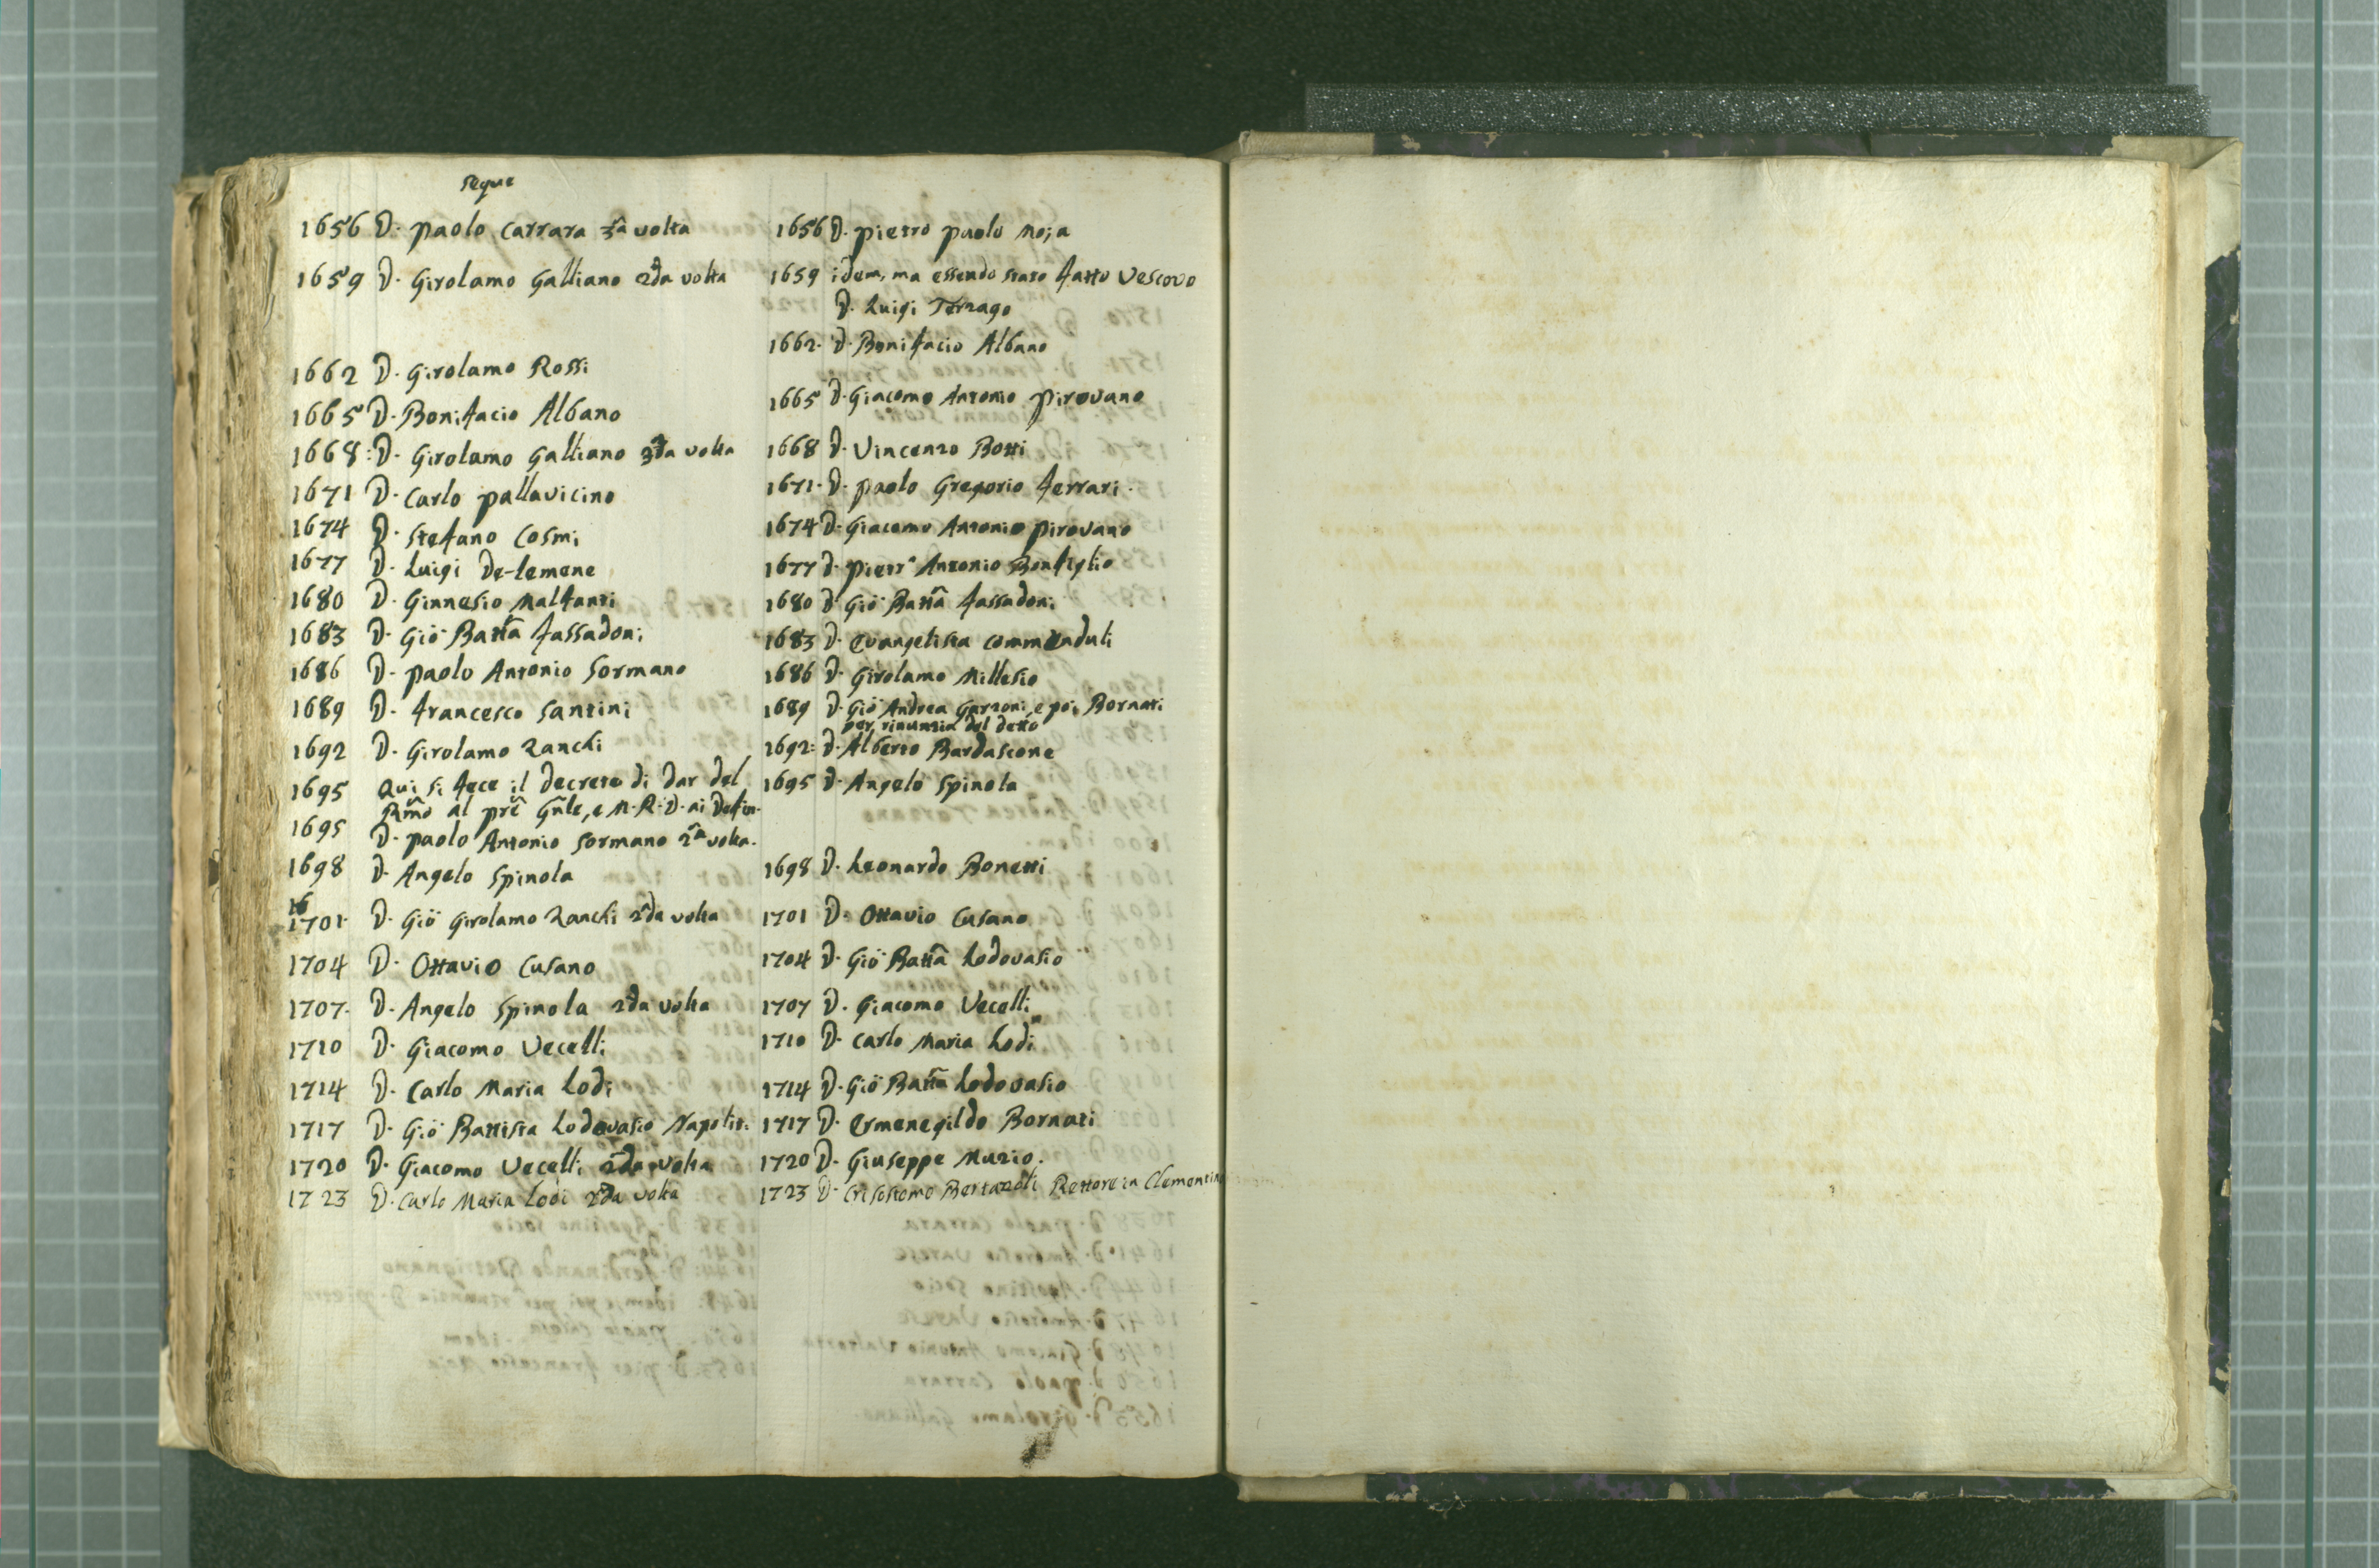 segue
1656 D. Paolo Carrara 3ª volta
1659 D. Girolamo Galliano 2da volta
1662 D. Girolamo Rossi
1665 D. Bonifacio Albano
1668: D. Girolamo Galliano 3da volta
1671 D. Carlo Pallavicino
1674 D. Stefano Cosmi
1677 D. Luigi De-lemene
1680 D. Ginnesio Malfanti
1683 D. Giō Battã Fassadoni
1686 D. Paolo Antonio Sormano
1689 D. Francesco Santini
1692 D. Girolamo Zanchi
1695 Qui si fece il decreto di dar del
Rmõ al prẽ Gnle, e M. R. D. ai Defin.
1695 D. Paolo Antonio Sormano 2ª volta.
1698 D. Angelo Spinola
16
1701. D. Giō Girolamo Zanchi 2da volta
1704 D. Ottavio Cusano
1707. D. Angelo Spinola 2da volta
1710 D. Giacomo Vecelli
1714 D. Carlo Maria Lodi
1717 D. Giō Battista Lodovasio Napolit.
1720 D. Giacomo Vecelli 2da volta
1723 D. Carlo Maria Lodi 2da volta
1656 D. Pietro Paolo Noja
1659 idem, ma essendo stato fatto Vescovo
D. Luigi Terzago
1662. D. Bonifacio Albano
1665 D. Giacomo Antonio Pirovano
1668 D. Vincenzo Botti
1671. D. Paolo Gregorio Ferrari.
1674 D. Giacomo Antonio Pirovano
1677 D. Pietrº Antonio Bonfiglio
1680 D. Giō Battã Fassadoni
1683 D. Evangelista Commenduli
1686 D. Girolamo Millesio
1689 D. Giō Andrea Garzoni, e poi Bornati
per rinunzia del detto
1692: D. Alberto Bardascone
1695 D. Angelo Spinola
1698 D. Leonardo Bonetti
1701 D. Ottavio Cusano
1704 D. Giō Battã Lodovasio
1707 D. Giacomo Vecelli
1710 D. Carlo Maria Lodi
1714 D. Giō Battã Lodovasio
1717 D. Ermenegildo Bornati
1720 D. Giuseppe Muzio.
1723 D. Crisostomo Bertazoli Rettore in Clementino